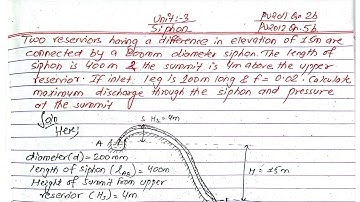 Unit:-3
PU2011 Qn 2b
Siphon
PU2012 Qn.5b
Two reserviors having a difference in elevation of 15m are
connected by a 200mm diameter siphon. The length of
siphon is 400m & the summit is 4m above the upper
reservior. If inlet leg is 100m long & f= 0.02. Calculate
maximum discharge through the siphon and pressure
at the summit
Soln
Here;
S Hs=4m
A
diameter(d)=200mm
length of siphon (LAB)=400m
Height of summit from upper
reservior (Hs)=4m
H=15m